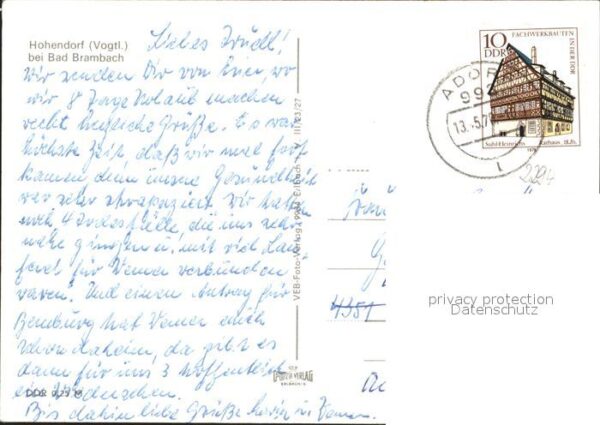 Hohendorf (Vogtl.)
bei Bad Brambach
Liebes Trudl!
Wir senden Dir von hier, wo
wir 8 Tage Urlaub machen
recht herzliche Grüße. Es war
höchste Zeit, daß wir mal fort
kamen denn unsere Gesundheit
war sehr strapaziert. Wir hatten
4 Todesfälle, die uns sehr
nahe gingen, mit viel Lau
ferei für Werner verbunden
waren. Und einen Antrag für
Bernburg hat Werner auch
schon daheim, da gibt es
dann für uns 3 hoffentlich
ein Wiedersehen.
Bis dahin liebe Grüße Werner
DDR 0,25 M
VEB-Foto-Verlag
III/63/27
FOTO VERLAG
10
DDR
FACHWERKBAUTEN
IN DER DDR
Suhl-Heinrichs
Rathaus
ADORF
13.-5.7
4351
privacy protection
Datenschutz